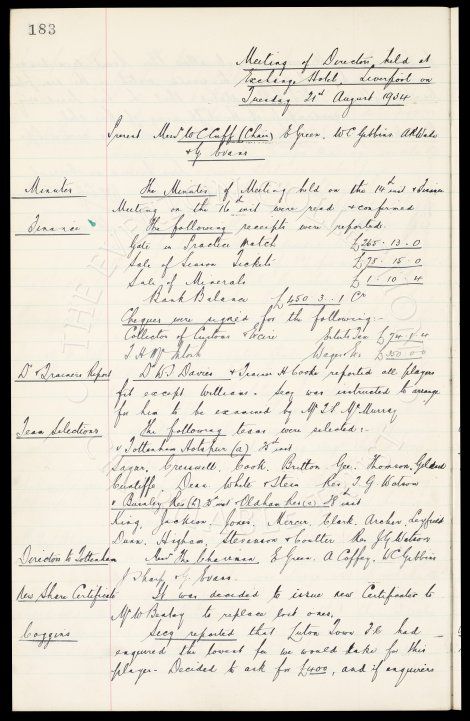 183
Meeting of Directors held at
Exchange Hotel, Liverpool on
Tuesday 21st August 1934
Present Messrs W C Cuff (Chair) E Green. W C Gibbins A R Wade
& G Evans
Minutes The Minutes of Meeting held on the 14th inst & Finance
Meeting on the 16th inst were read & confirmed
Finance The following receipts were reported.
Gate in Practice Match £265. 13. 0
Sale of Season Tickets £75. 15. 0
Sale of Minerals £1. 10. 4
Bank Balance £450 3. 1 Cr
Cheques were signed for the following:-
Collector of Customs & Excise Ents Tax £74. 1. 4
Wages Ex £350 0 0
Dr & Trainers Report Dr D T Davies & Trainer H Cooke reported all players
fit except Williams. Secy was instructed to arrange
for him to be examined by Mr T S McMurray
Team Selections The following teams were selected:-
v Tottenham Hotspur (a) 25th inst
Sagar, Cresswell, Cook, Britton Gee. Thomson, Geldard
Cunliffe, Dean. White & Stein Res. T. G Watson
v Burnley Res (h) 25 inst v Oldham Res (a) 28th inst
King, Jackson, Jones, Mercer, Clark, Archer, Leyfield
Dunn, Higham, Stevenson & Coulter Res J G Watson
Directors to Tottenham Messrs The Chairman E Green. A Coffey. W C Gibbins
J Sharp & G Evans.
New Share Certificate It was decided to issue new Certificate to
Mr W to replace lost ones.
Coggins Secy reported that Luton Town F.C had
enquired the lowest fee we would take for this
player. Decided to ask for £400, and if enquiries